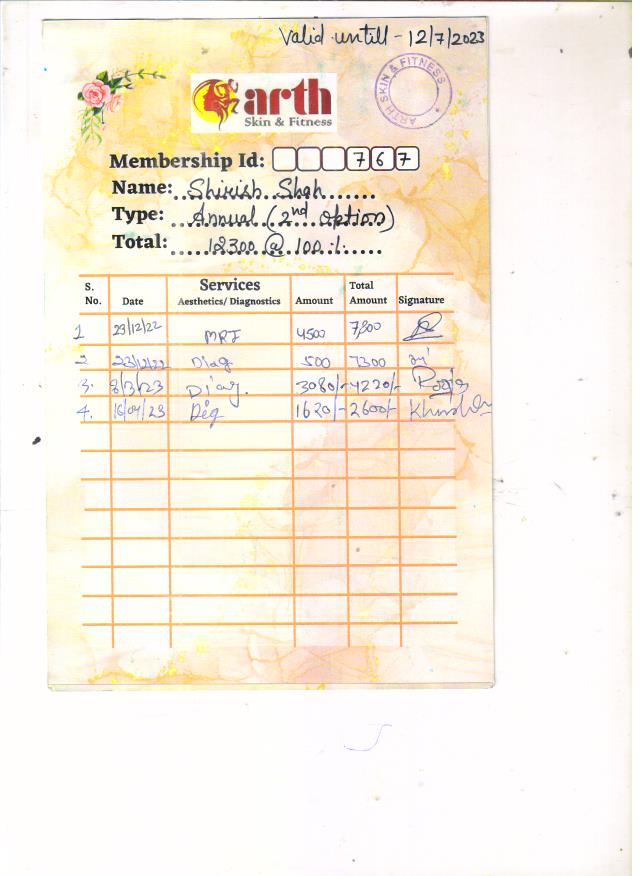 Valid untill - 12/7/2023
ARTH SKIN & FITNESS
arth
Skin & Fitness
Membership Id: 767
Name: Shirish Shah
Type: Annual (2nd Option)
Total: 12300 @ 100 %
S. No. Date Services Aesthetics/ Diagnostics Amount Total Amount Signature
1 23/12/22 MRI 4500 7,800
2 23/12/22 Diag 500 7300
3. 8/3/23 Diag. 3080/- 4220/-
4. 16/04/23 1620/- 2600/-